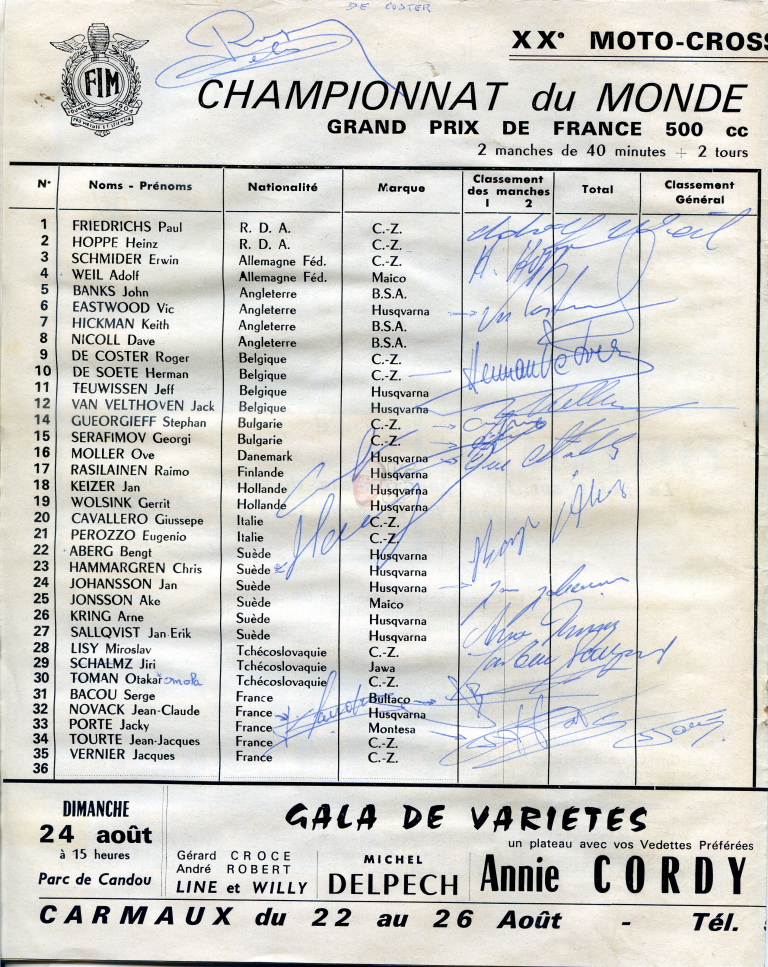 DE COSTER
XX° MOTO-CROSS
FIM
CHAMPIONNAT du MONDE
GRAND PRIX DE FRANCE 500 cc
2 manches de 40 minutes + 2 tours
N° Noms - Prénoms Nationalité Marque Classement des manches 1 2 Total Classement Général
1 FRIEDRICHS Paul R. D. A. C.-Z.
2 HOPPE Heinz R. D. A. C.-Z.
3 SCHMIDER Erwin Allemagne Féd. C.-Z.
4 WEIL Adolf Allemagne Féd. Maico
5 BANKS John Angleterre B.S.A.
6 EASTWOOD Vic Angleterre Husqvarna
7 HICKMAN Keith Angleterre B.S.A.
8 NICOLL Dave Angleterre B.S.A.
9 DE COSTER Roger Belgique C.-Z.
10 DE SOETE Herman Belgique C.-Z.
11 TEUWISSEN Jeff Belgique Husqvarna
12 VAN VELTHOVEN Jack Belgique Husqvarna
14 GUEORGIEFF Stephan Bulgarie C.-Z.
15 SERAFIMOV Georgi Bulgarie C.-Z.
16 MOLLER Ove Danemark Husqvarna
17 RASILAINEN Raimo Finlande Husqvarna
18 KEIZER Jan Hollande Husqvarna
19 WOLSINK Gerrit Hollande Husqvarna
20 CAVALLERO Giusseppe Italie C.-Z.
21 PEROZZO Eugenio Italie C.-Z.
22 ABERG Bengt Suède Husqvarna
23 HAMMARGREN Chris Suède Husqvarna
24 JOHANSSON Jan Suède Husqvarna
25 JONSSON Ake Suède Maico
26 KRING Arne Suède Husqvarna
27 SALLQVIST Jan-Erik Suède Husqvarna
28 LISY Miroslav Tchécoslovaquie C.-Z.
29 SCHALMZ Jiri Tchécoslovaquie Jawa
30 TOMAN Otakar Tchécoslovaquie C.-Z.
31 BACOU Serge France Bultaco
32 NOVACK Jean-Claude France Husqvarna
33 PORTE Jacky France Montesa
34 TOURTE Jean-Jacques France C.-Z.
35 VERNIER Jacques France C.-Z.
36
DIMANCHE
24 août
à 15 heures
Parc de Candou
GALA DE VARIETES
un plateau avec vos Vedettes Préférées
Gérard CROCE
André ROBERT
LINE et WILLY
MICHEL
DELPECH
Annie CORDY
CARMAUX du 22 au 26 Août - Tél.